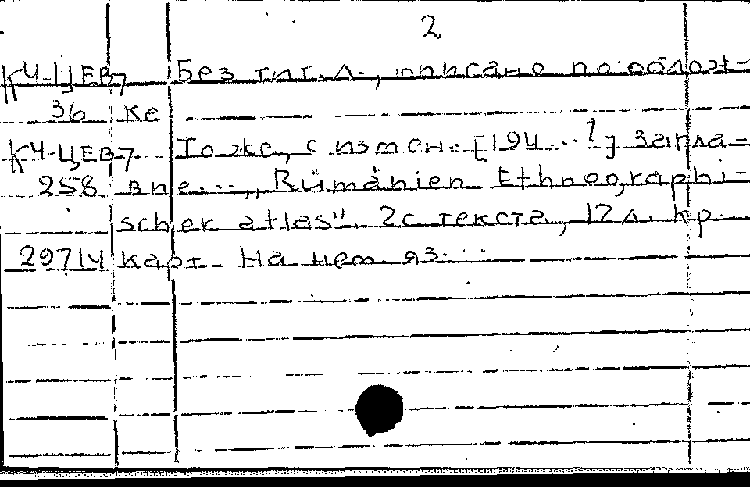 2
КЧ-ЦЕВ7 Без тит. л., описано по облож-
36 ке
КЧ-ЦЕВ7 То же, с измен. [194...?] загла-
258 вие... „Rümänien Ethnographi-
scher atlas". 2с текста, 12л. кр.
29714 карт. На нем. яз...